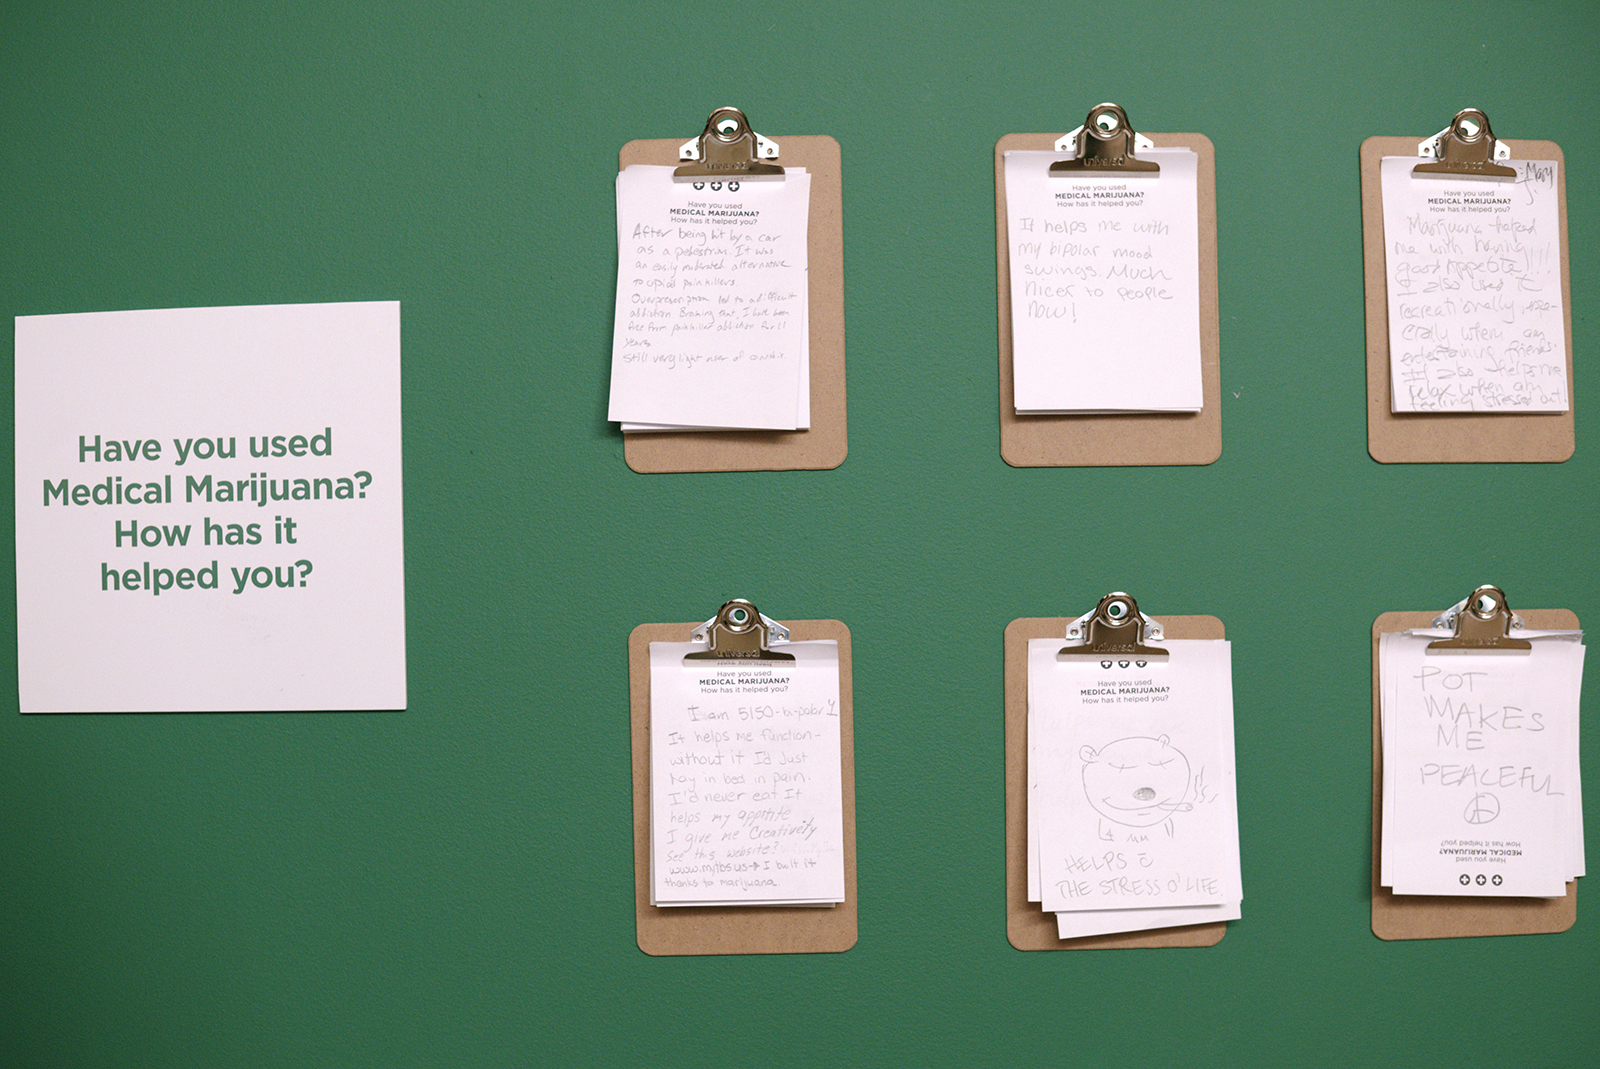 Have you used
Medical Marijuana?
How has it
helped you?
universal
Have you used
MEDICAL MARIJUANA?
How has it helped you?
After being hit by a car
as a pedestrian. It was
an easily motivated alternative
to opioid painkillers.
Overprescription led to a difficult
addiction. Braving that, I have been
free from painkiller addiction for 11
years
Still very light user of cannabis.
universal
Have you used
MEDICAL MARIJUANA?
How has it helped you?
It helps me with
my bipolar mood
swings. Much
nicer to people
now!
universal
Mary
Have you used
MEDICAL MARIJUANA?
How has it helped you?
Marijuana helped
me with having
good appetite!!!!
I also used it
recreationally, espe-
cially when am
entertaining friends.
It also helps me
relax when am
feeling stressed out!
universal
Have you used
MEDICAL MARIJUANA?
How has it helped you?
I am 5150-bi-polar
It helps me function-
without it I'd Just
lay in bed in pain.
I'd never eat It
helps my appitite
I give me Creativity
see this website?
I built it
thanks to marijuana.
universal
Have you used
MEDICAL MARIJUANA?
How has it helped you?
HELPS c̄
THE STRESS O' LIFE.
POT
MAKES
ME
PEACEFUL
How has it helped you?
MEDICAL MARIJUANA?
Have you used